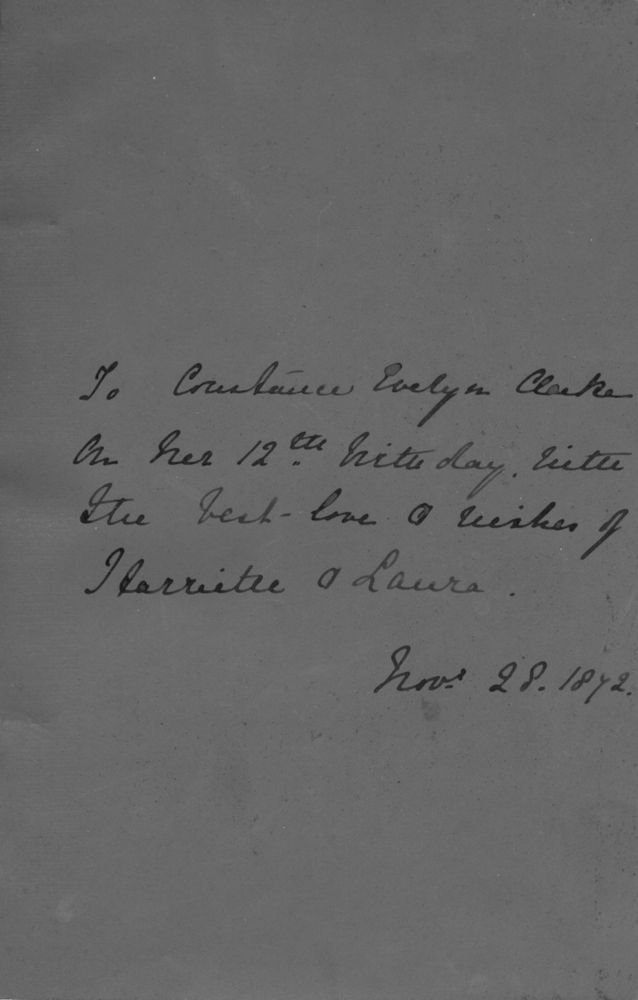 To Constance Evelyn Clarke
On her 12th birthday. With
the best love & wishes of
Harriette & Laura.
Novr 28. 1872.